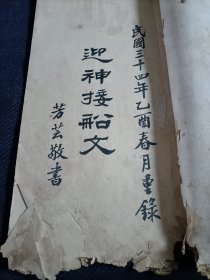 民國三十四年乙酉春月重錄
迎神接船文
芳芸敬書